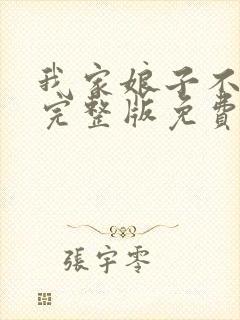 我家娘子不
完整版免費
張宇零